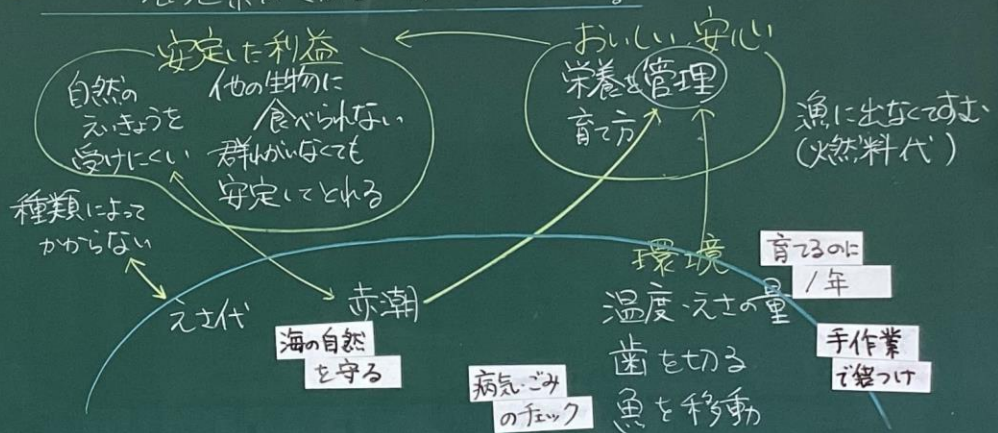 安定した利益
自然の
えいきょうを
受けにくい
他の生物に
食べられない
群れがいなくても
安定してとれる
おいしい 安心
栄養を管理
育て方
漁に出なくてすむ
(燃料代)
種類によって
かからない
えさ代
赤潮
海の自然
を守る
病気・ごみ
のチェック
環境
温度・えさの量
歯を切る
魚を移動
育てるのに
1年
手作業
で袋つけ